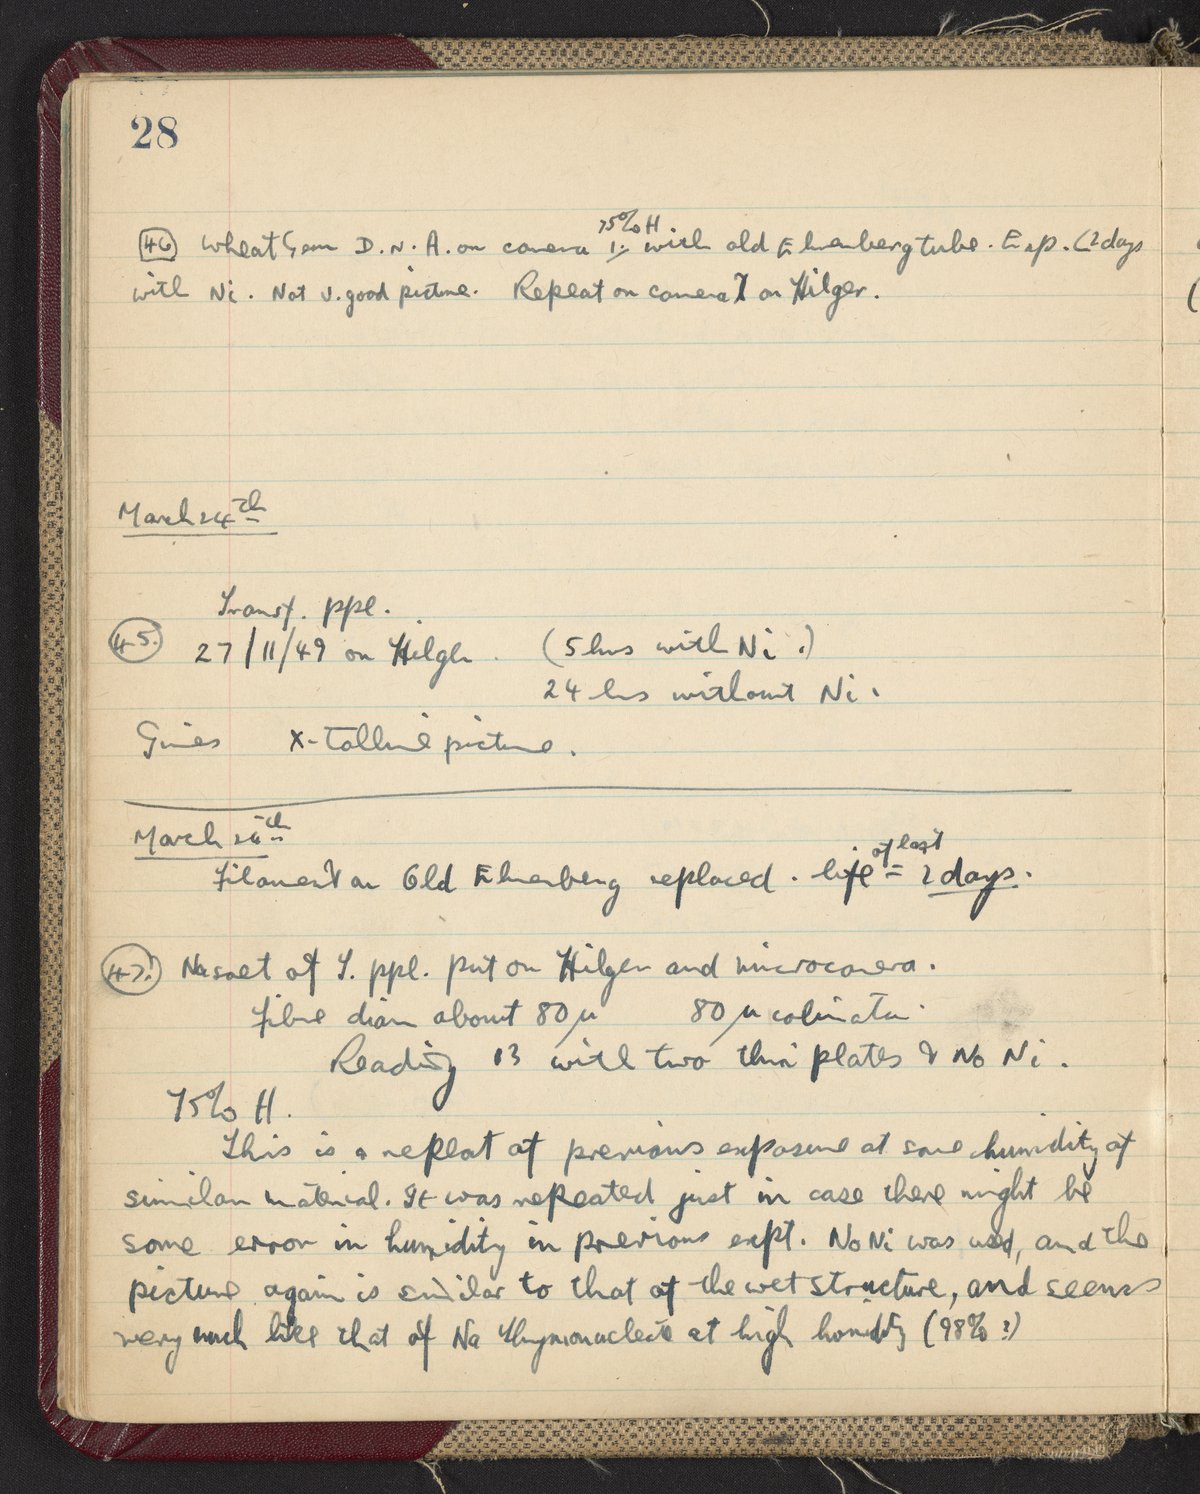 28
75% H
46 Wheat Germ D.N.A. on camera 1: with old Ehrenberg tube. Exp. (2 days
with Ni. Not v. good picture. Repeat on camera 1 on Hilger.
March 24th
Transf. ppl.
45. 27/11/49 on Hilger. (5 hrs with Ni.)
24 hrs without Ni.
Gives X-talline picture.
March 26th
of last
Filament on Old Ehrenberg replaced. life = 2 days.
47. Na salt of T. ppl. put on Hilger and microcamera.
Fibre diam about 80 μ 80 μ colimator.
Reading 13 with two thin plates & No Ni.
75% H.
This is a repeat of previous exposure at same humidity of
similar material. It was repeated just in case there might be
some error in humidity in previous expt. No Ni was used, and the
picture again is similar to that of the wet structure, and seems
very much like that of Na thymonucleate at high humidity (98%?)